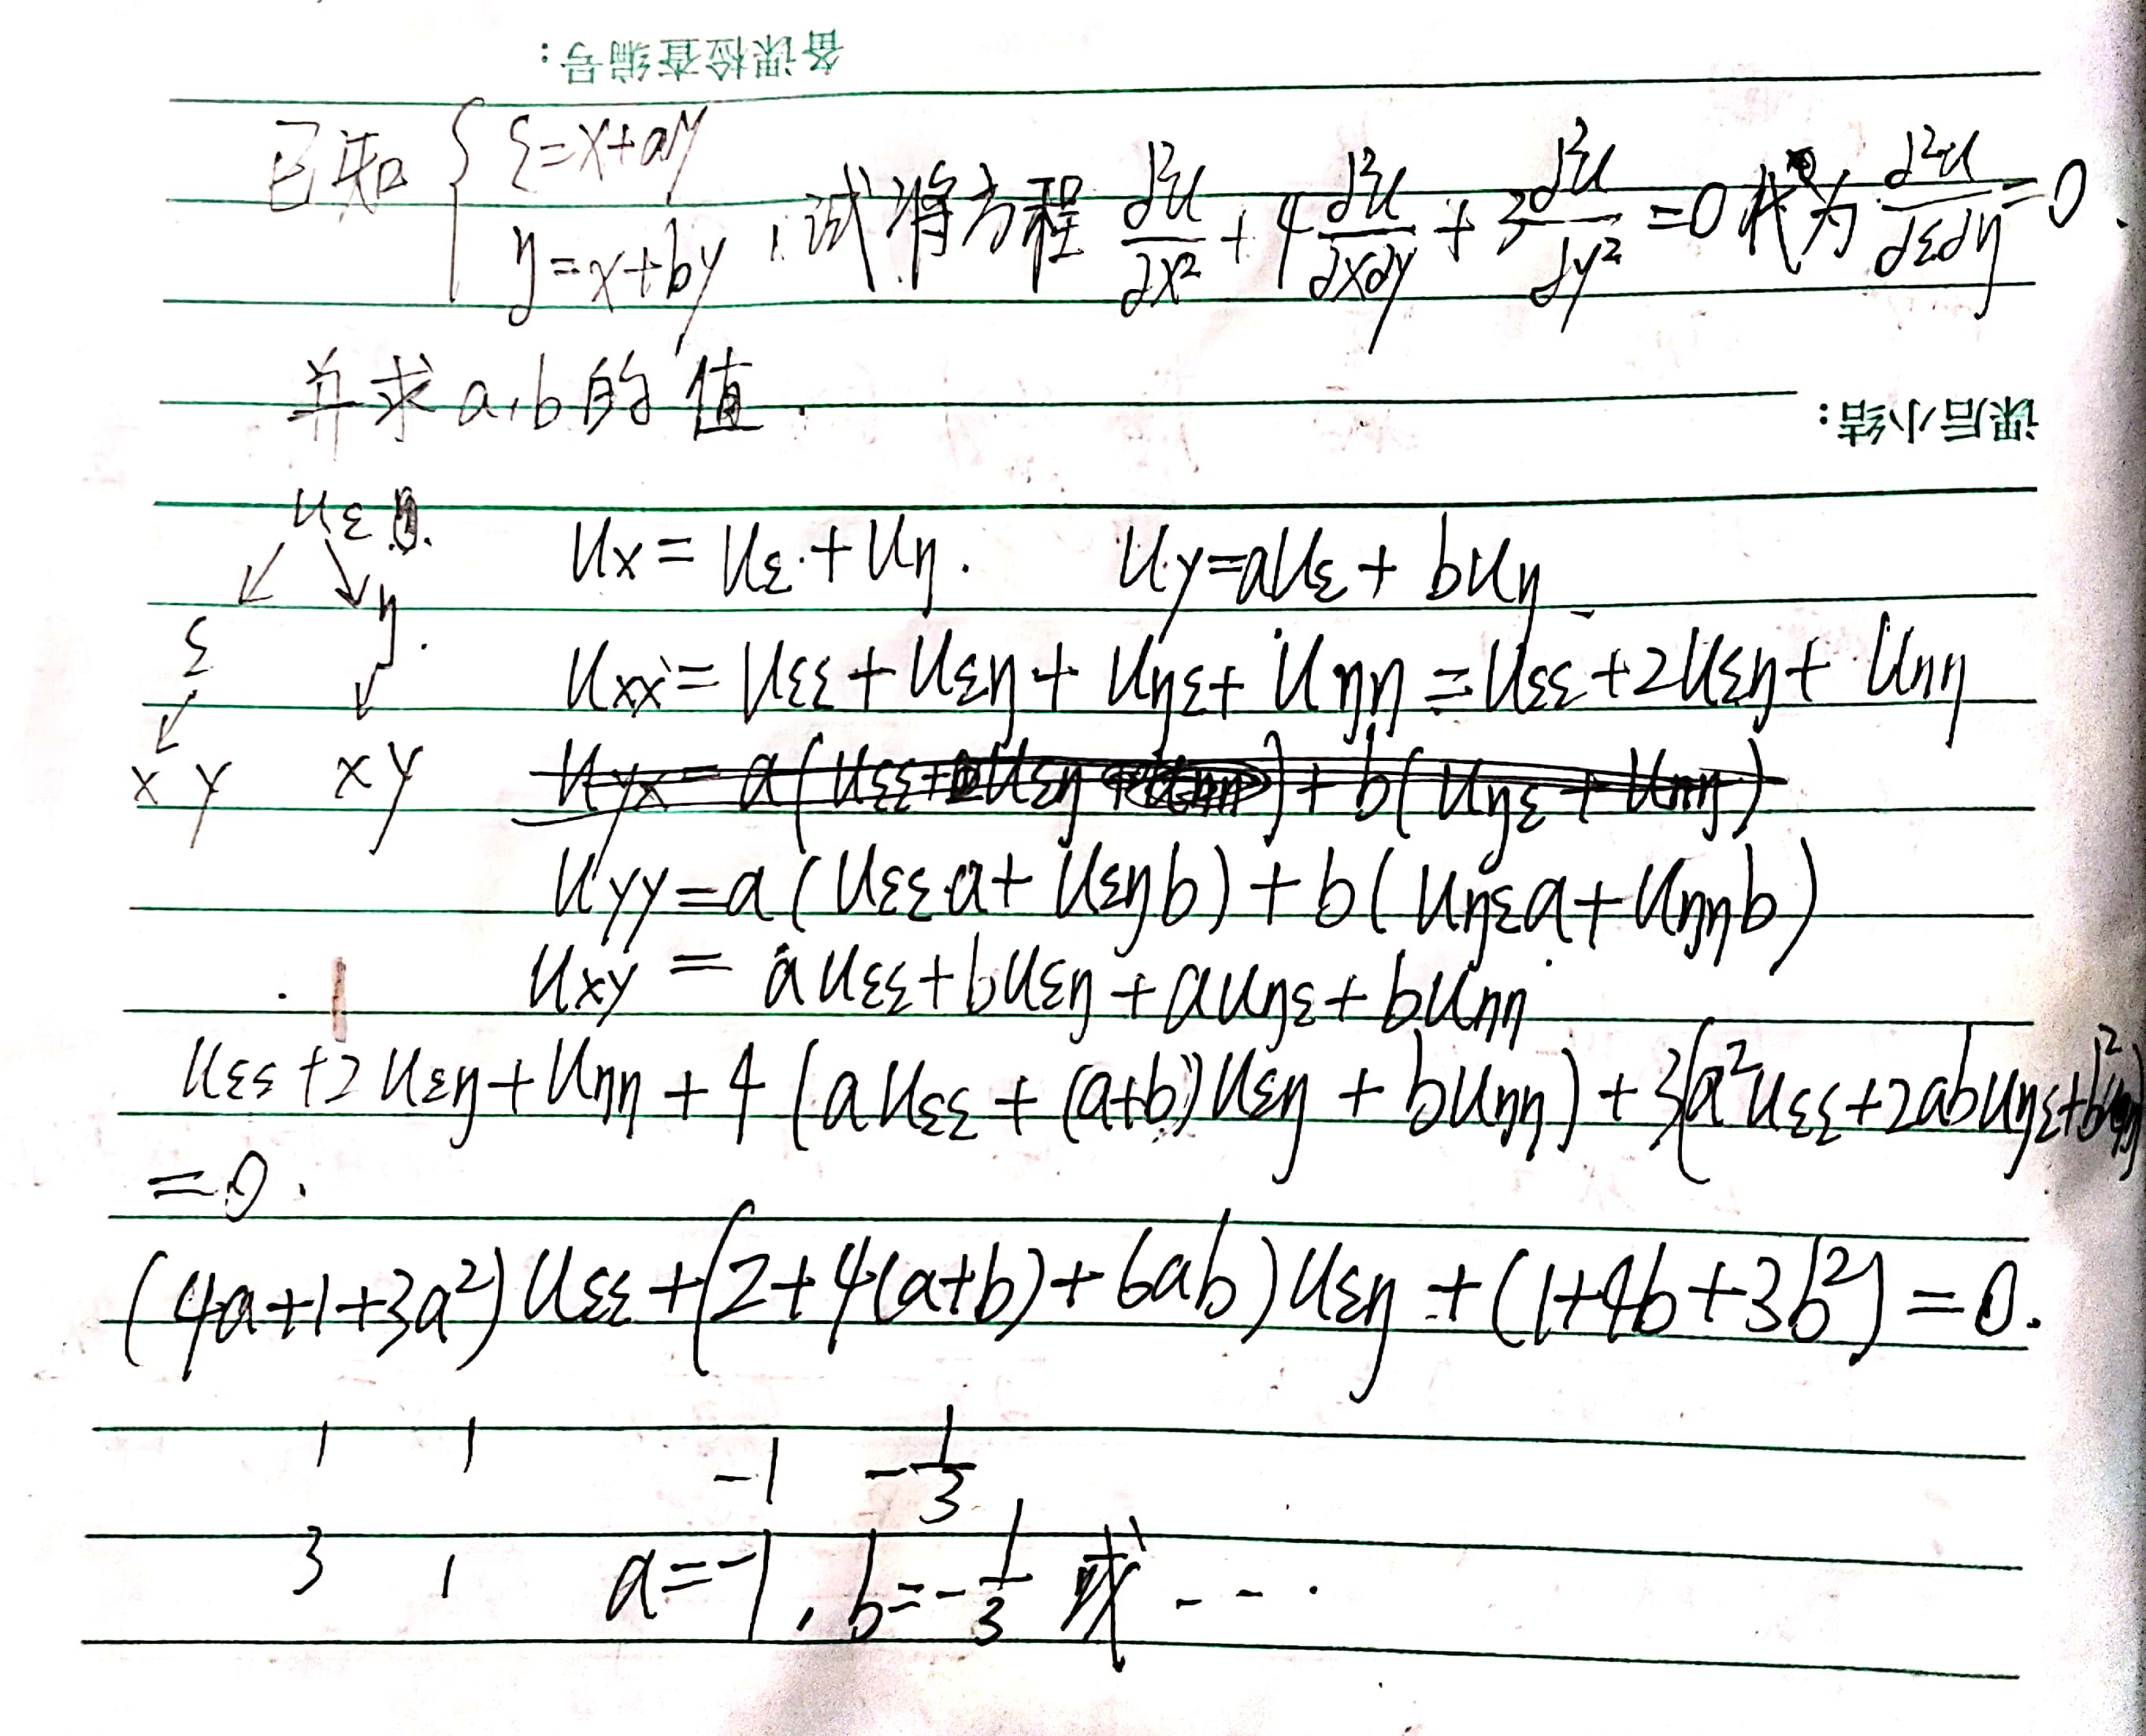 备课检查编号：
已知 { ξ=x+ay η=x+by , 试将方程 ∂²u/∂x² + 4 ∂²u/∂x∂y + 3 ∂²u/∂y² =0 化为 ∂²u/∂ξ∂η =0.
并求a,b的值.
课后小结：
uξ
ux = uξ + uη. uy=auξ + buη
ξ η.
uxx = uξξ + uξη + uηξ + uηη = uξξ + 2uξη + uηη
x y x y
uyy = a(uξξa + uξηb) + b(uηξa + uηηb)
uxy = auξξ + buξη + auηξ + buηη
uξξ + 2uξη + uηη + 4(auξξ + (a+b)uξη + buηη) + 3(a²uξξ + 2abuηξ + b²uηη)
=0.
(4a+1+3a²)uξξ + (2+4(a+b)+6ab)uξη + (1+4b+3b²) = 0.
1 1 -1 -1/3
3 1 a=-1, b=-1/3 或---.